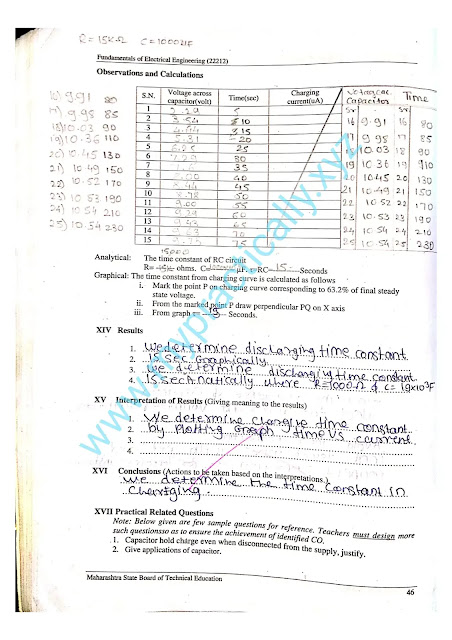 R= 15KΩ C=1000µF
Fundamentals of Electrical Engineering (22212)
Observations and Calculations
16) 9.91 80
17) 9.95 85
18) 10.03 90
19) 10.36 110
20) 10.45 130
21) 10.49 150
22) 10.52 170
23) 10.53 190
24) 10.54 210
25) 10.54 230
S.N. Voltage across capacitor(volt) Time(sec) Charging current(uA)
1 5
2 3.54 10
3 4.44 15
4 5.31 20
5 6.25 25
6 7.29 30
7 35
8 40
9 8.44 45
10 8.78 50
11 9.00 55
12 60
13 65
14 9.63 70
15 75
Capacitor Time
16 9.91 16 80
17 9.95 17 85
18 10.03 18 90
19 10.36 19 110
20 10.45 20 130
21 10.49 21 150
22 10.52 22 170
23 10.53 23 190
24 10.54 24 210
25 10.54 25 230
Analytical: The time constant of RC circuit
R= 15K ohms. C= µF. RC= 15 Seconds
Graphical: The time constant from charging curve is calculated as follows
i. Mark the point P on charging curve corresponding to 63.2% of final steady
state voltage.
ii. From the marked point P draw perpendicular PQ on X axis
iii. From graph = Seconds.
XIV Results
1. We determine discharging time constant
2. 15 sec Graphically.
3. we determine discharging time constant
4. 15 sec where R=1000Ω &
XV Interpretation of Results (Giving meaning to the results)
1. We determine time constant
2. by Plotting Graph time Vs current
3.
4.
XVI Conclusions (Actions to be taken based on the interpretations.)
we determine the time constant in
Charging
XVII Practical Related Questions
Note: Below given are few sample questions for reference. Teachers must design more
such questionsso as to ensure the achievement of identified CO.
1. Capacitor hold charge even when disconnected from the supply, justify.
2. Give applications of capacitor.
Maharashtra State Board of Technical Education
46